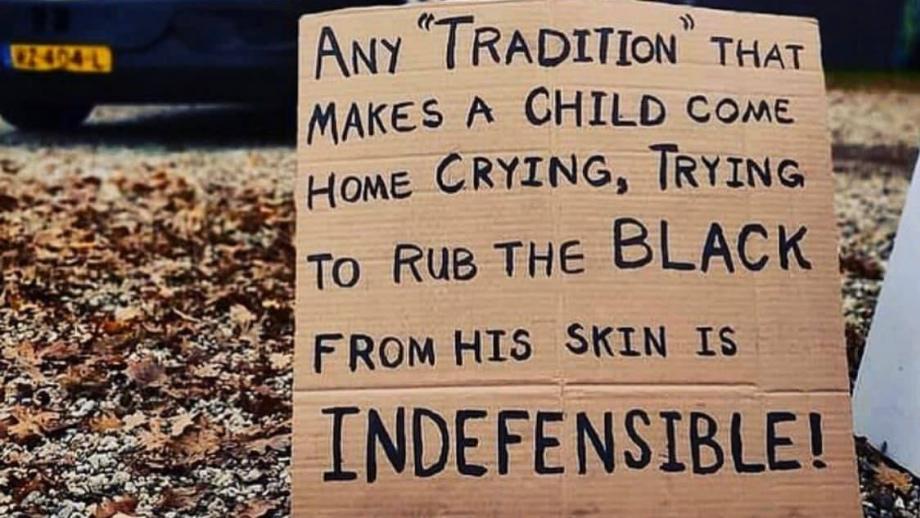 ANY "TRADITION" THAT
MAKES A CHILD COME
HOME CRYING, TRYING
TO RUB THE BLACK
FROM HIS SKIN IS
INDEFENSIBLE!